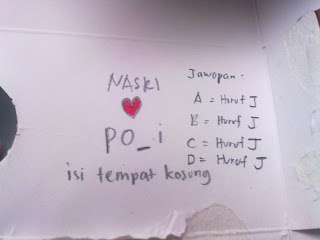 NASKI
PO_i
isi tempat kosung
Jawopan:
A = Huruf J
B = Huruf J
C = Huruf J
D = Huruf J